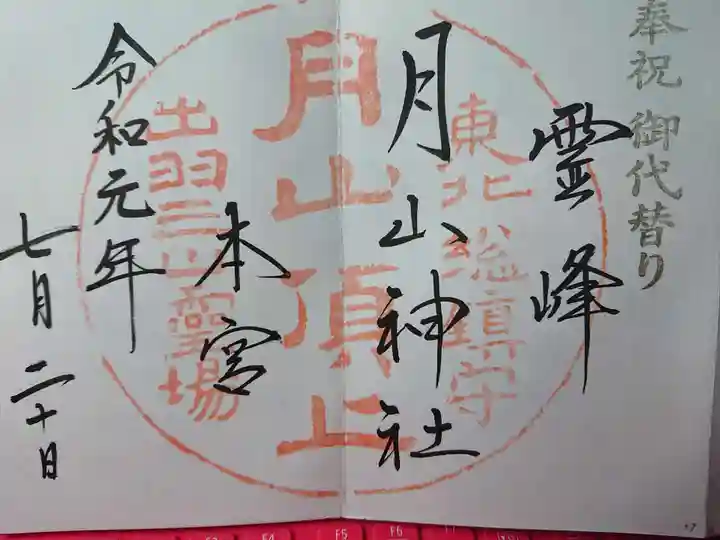 奉祝 御代替り
霊峰
月山神社
本宮
令和元年
七月二十日
東北総鎮守
月山頂上
出羽三山霊場
F4
F5
F6